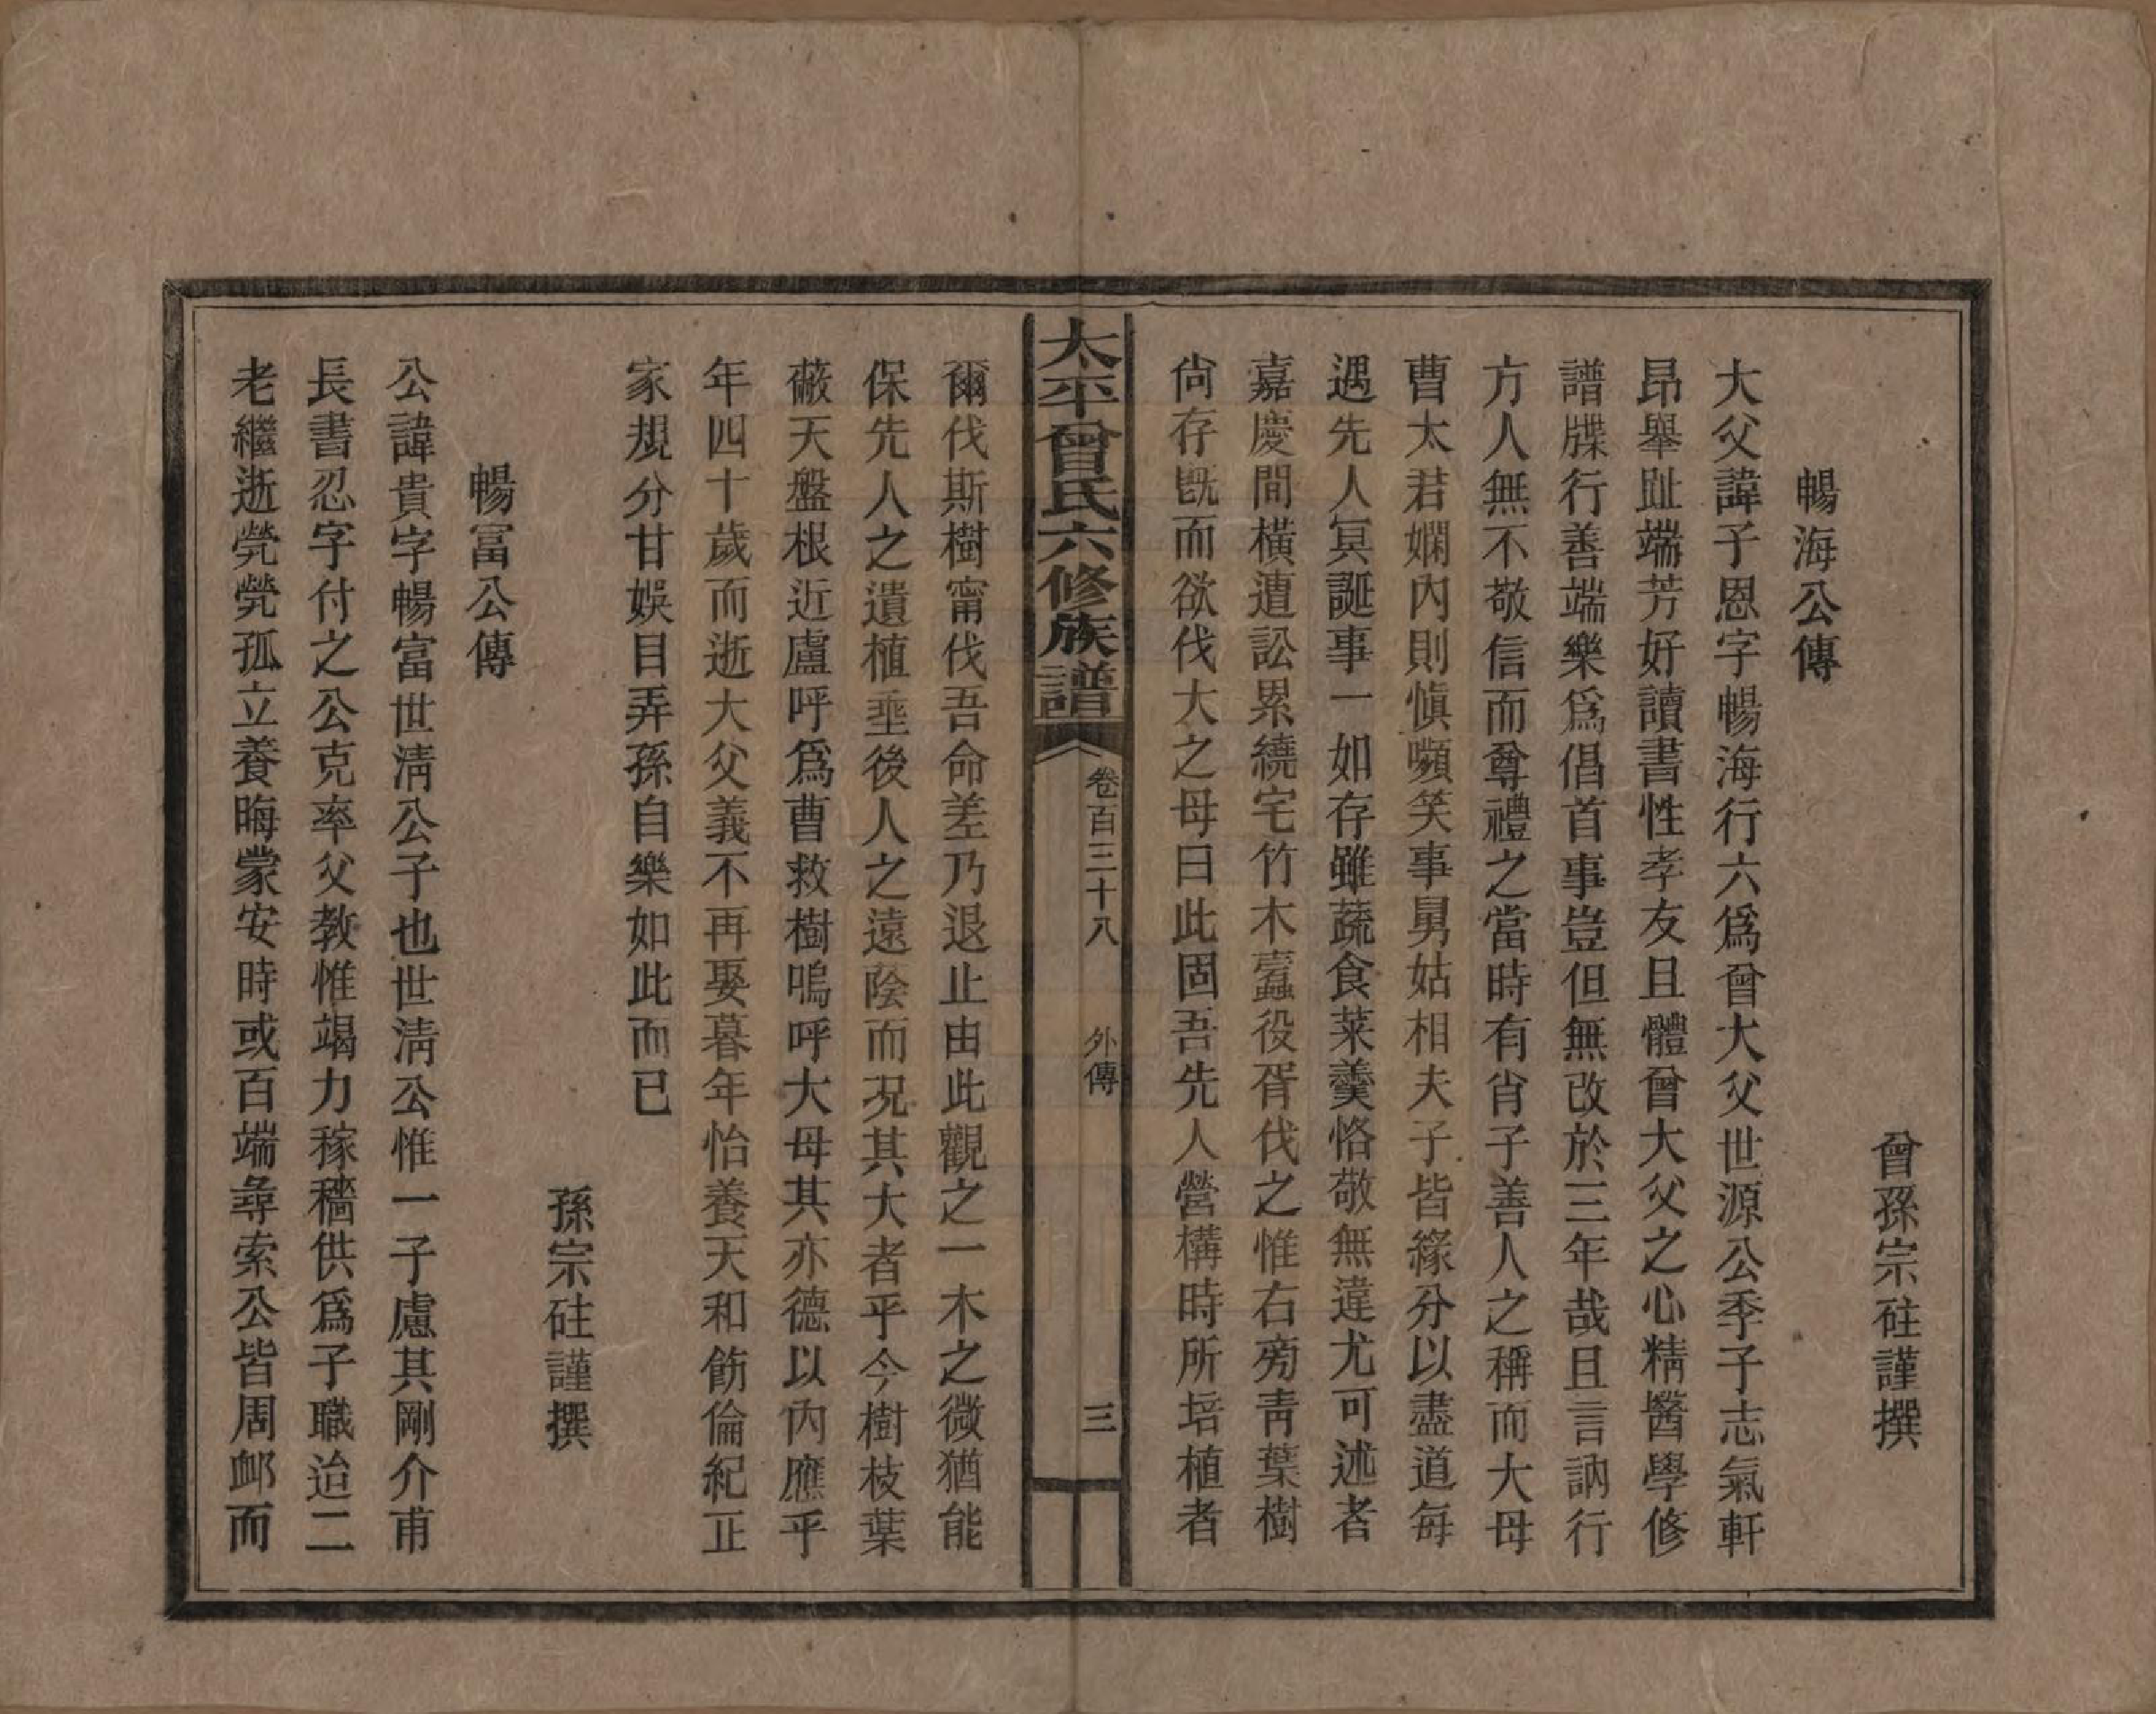 曾孫宗砫謹撰
暢海公傳
大父諱子恩字暢海行六爲曾大父世源公季子志氣軒
昂舉趾端芳好讀書性孝友且體曾大父之心精醫學修
譜牒行善端樂爲倡首事豈但無改於三年哉且言訥行
方人無不敬信而尊禮之當時有肖子善人之稱而大母
曹太君嫻內則慎嚬笑事舅姑相夫子皆緣分以盡道每
遇先人冥誕事一如存雖蔬食菜羹恪敬無違尤可述者
嘉慶間橫遭訟累繞宅竹木蠹役胥伐之惟右旁青葉樹
尙存旣而欲伐大之母曰此固吾先人營構時所培植者
太平曾氏六修族譜
卷百三十八 外傳 三
爾伐斯樹甯伐吾命差乃退止由此觀之一木之微猶能
保先人之遺植垂後人之遠陰而况其大者乎今樹枝葉
蔽天盤根近廬呼爲曹救樹嗚呼大母其亦德以內應乎
年四十歲而逝大父義不再娶暮年怡養天和飭倫紀正
家規分甘娛目弄孫自樂如此而已
孫宗砫謹撰
暢富公傳
公諱貴字暢富世淸公子也世淸公惟一子慮其剛介甫
長書忍字付之公克率父教惟竭力稼穡供爲子職迨二
老繼逝煢煢孤立養晦蒙安時或百端尋索公皆周卹而